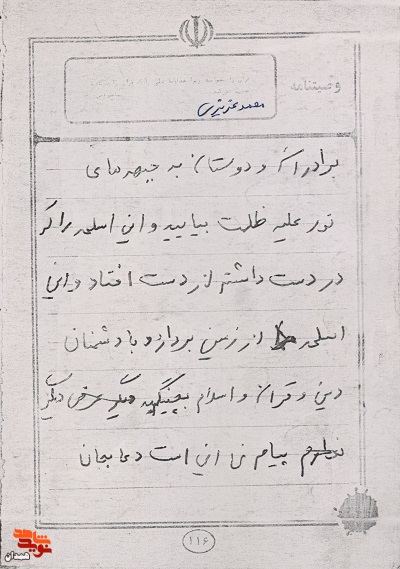 وصیتنامه
محمد عزیزی
برادران و دوستان به جبهه های
نور علیه ظلمت بیایید و این اسلحه را که
در دست داشتم از دست افتاد و این
اسلحه از زمین بردارد و با دشمنان
دین و قرآن و اسلام بجنگید دیگر عرض دیگری
ندارم پیام من این است دعا بجان
۱۱۶
نوید شاهد
همدان